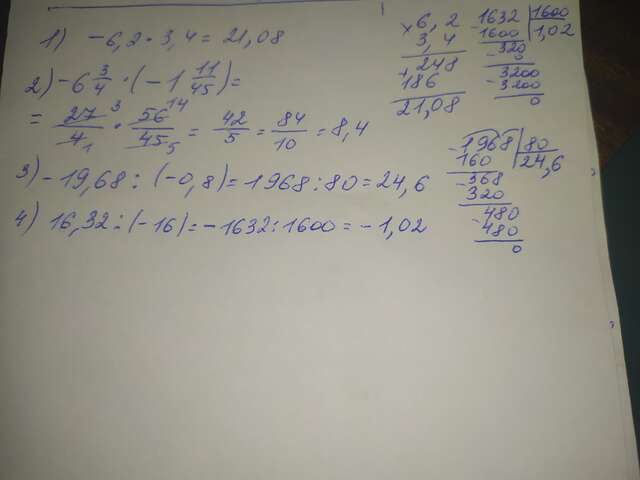 1) -6,2 · 3,4 = 21,08
2) -6 3/4 · (-1 11/45) =
= 27/4 · 56/45 = 42/5 = 84/10 = 8,4
3 1 14 5
3) -19,68 : (-0,8) = 1968 : 80 = 24,6
4) 16,32 : (-16) = -1632 : 1600 = -1,02
× 6,2
3,4
+ 248
186
21,08
-1632 | 1600
1600 | 1,02
- 320
0
- 3200
3200
0
-1968 | 80
160 | 24,6
-368
320
-480
480
0